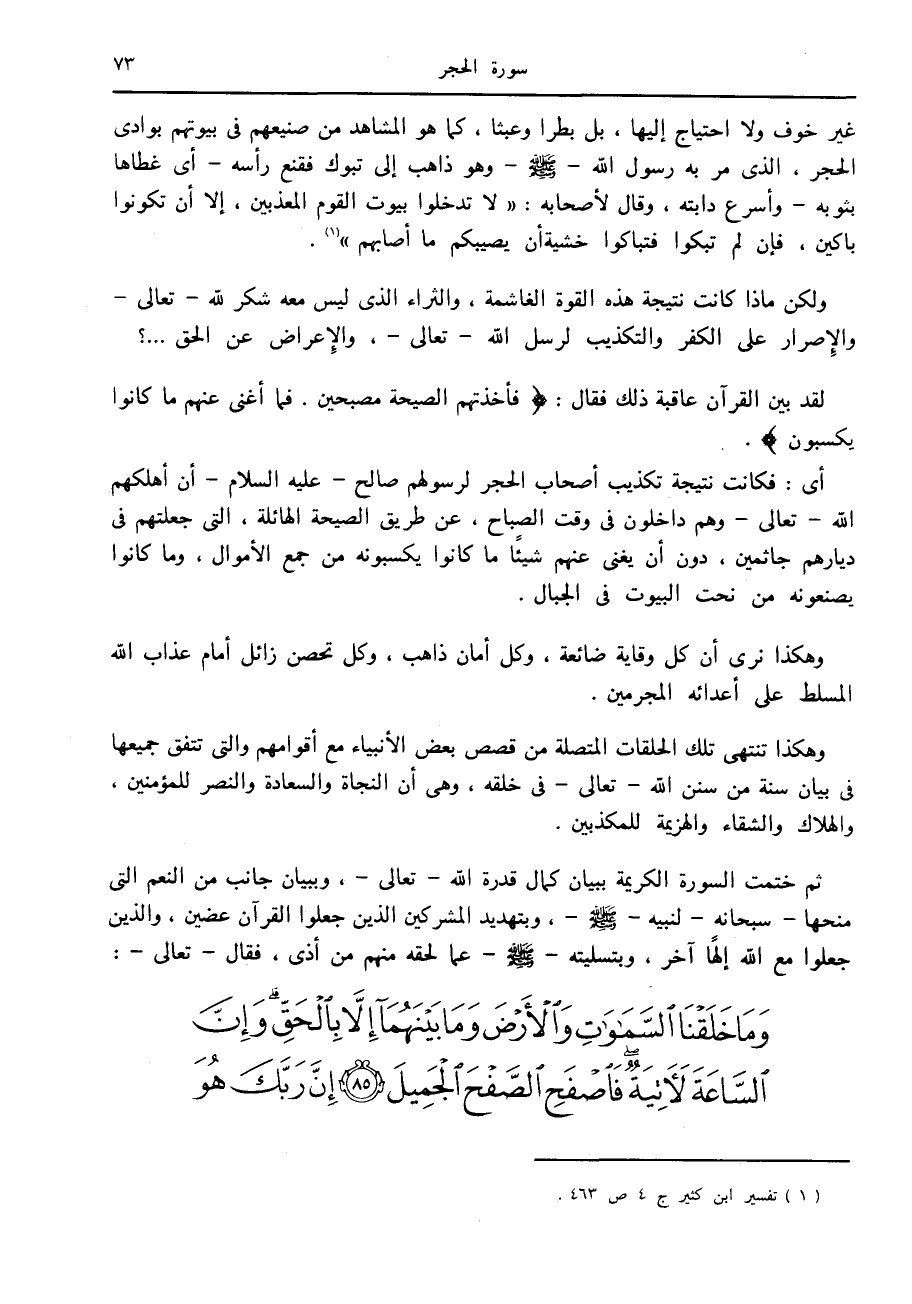 سورة الحجر ٧٣
غير خوف ولا احتياج إليها ، بل بطرا وعبثا ، كما هو المشاهد من صنيعهم فى بيوتهم بوادى
الحجر ، الذى مر به رسول الله – ﷺ – وهو ذاهب إلى تبوك فقنع رأسه – أى غطاها
بثوبه – وأسرع دابته ، وقال لأصحابه : « لا تدخلوا بيوت القوم المعذبين ، إلا أن تكونوا
باكين ، فإن لم تبكوا فتباكوا خشيةأن يصيبكم ما أصابهم »(١) .
ولكن ماذا كانت نتيجة هذه القوة الغاشمة ، والثراء الذى ليس معه شكر لله – تعالى –
والإصرار على الكفر والتكذيب لرسل الله – تعالى – ، والإعراض عن الحق ...؟
لقد بين القرآن عاقبة ذلك فقال : ﴿ فأخذتهم الصيحة مصبحين . فما أغنى عنهم ما كانوا
يكسبون ﴾ .
أى : فكانت نتيجة تكذيب أصحاب الحجر لرسولهم صالح – عليه السلام – أن أهلكهم
الله – تعالى – وهم داخلون فى وقت الصباح ، عن طريق الصيحة الهائلة ، التى جعلتهم فى
ديارهم جاثمين ، دون أن يغنى عنهم شيئًا ما كانوا يكسبونه من جمع الأموال ، وما كانوا
يصنعونه من نحت البيوت فى الجبال .
وهكذا نرى أن كل وقاية ضائعة ، وكل أمان ذاهب ، وكل تحصن زائل أمام عذاب الله
المسلط على أعدائه المجرمين .
وهكذا تنتهى تلك الحلقات المتصلة من قصص بعض الأنبياء مع أقوامهم والتى تتفق جميعها
فى بيان سنة من سنن الله – تعالى – فى خلقه ، وهى أن النجاة والسعادة والنصر للمؤمنين ،
والهلاك والشقاء والهزيمة للمكذبين .
ثم ختمت السورة الكريمة ببيان كمال قدرة الله – تعالى – ، وببيان جانب من النعم التى
منحها – سبحانه – لنبيه – ﷺ – ، وبتهديد المشركين الذين جعلوا القرآن عضين ، والذين
جعلوا مع الله إلهًا آخر ، وبتسليته – ﷺ – عما لحقه منهم من أذى ، فقال – تعالى – :
وَمَا خَلَقْنَا ٱلسَّمَٰوَٰتِ وَٱلْأَرْضَ وَمَا بَيْنَهُمَآ إِلَّا بِٱلْحَقِّ ۗ وَإِنَّ
ٱلسَّاعَةَ لَءَاتِيَةٌ ۖ فَٱصْفَحِ ٱلصَّفْحَ ٱلْجَمِيلَ ﴿٨٥﴾ إِنَّ رَبَّكَ هُوَ
( ١ ) تفسير ابن كثير ج ٤ ص ٤٦٣ .